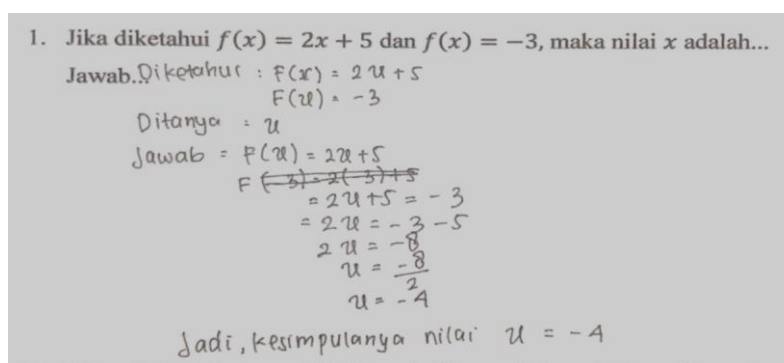 1. Jika diketahui f(x) = 2x + 5 dan f(x) = −3, maka nilai x adalah...
Jawab.. Diketahui : F(x) = 2x + 5
F(x) = -3
Ditanya : x
Jawab = F(x) = 2x + 5
F (-3) = 2(-3) + 5
= 2x + 5 = -3
= 2x = -3 - 5
2x = -8
x = -8/2
x = -4
Jadi, kesimpulanya nilai x = -4